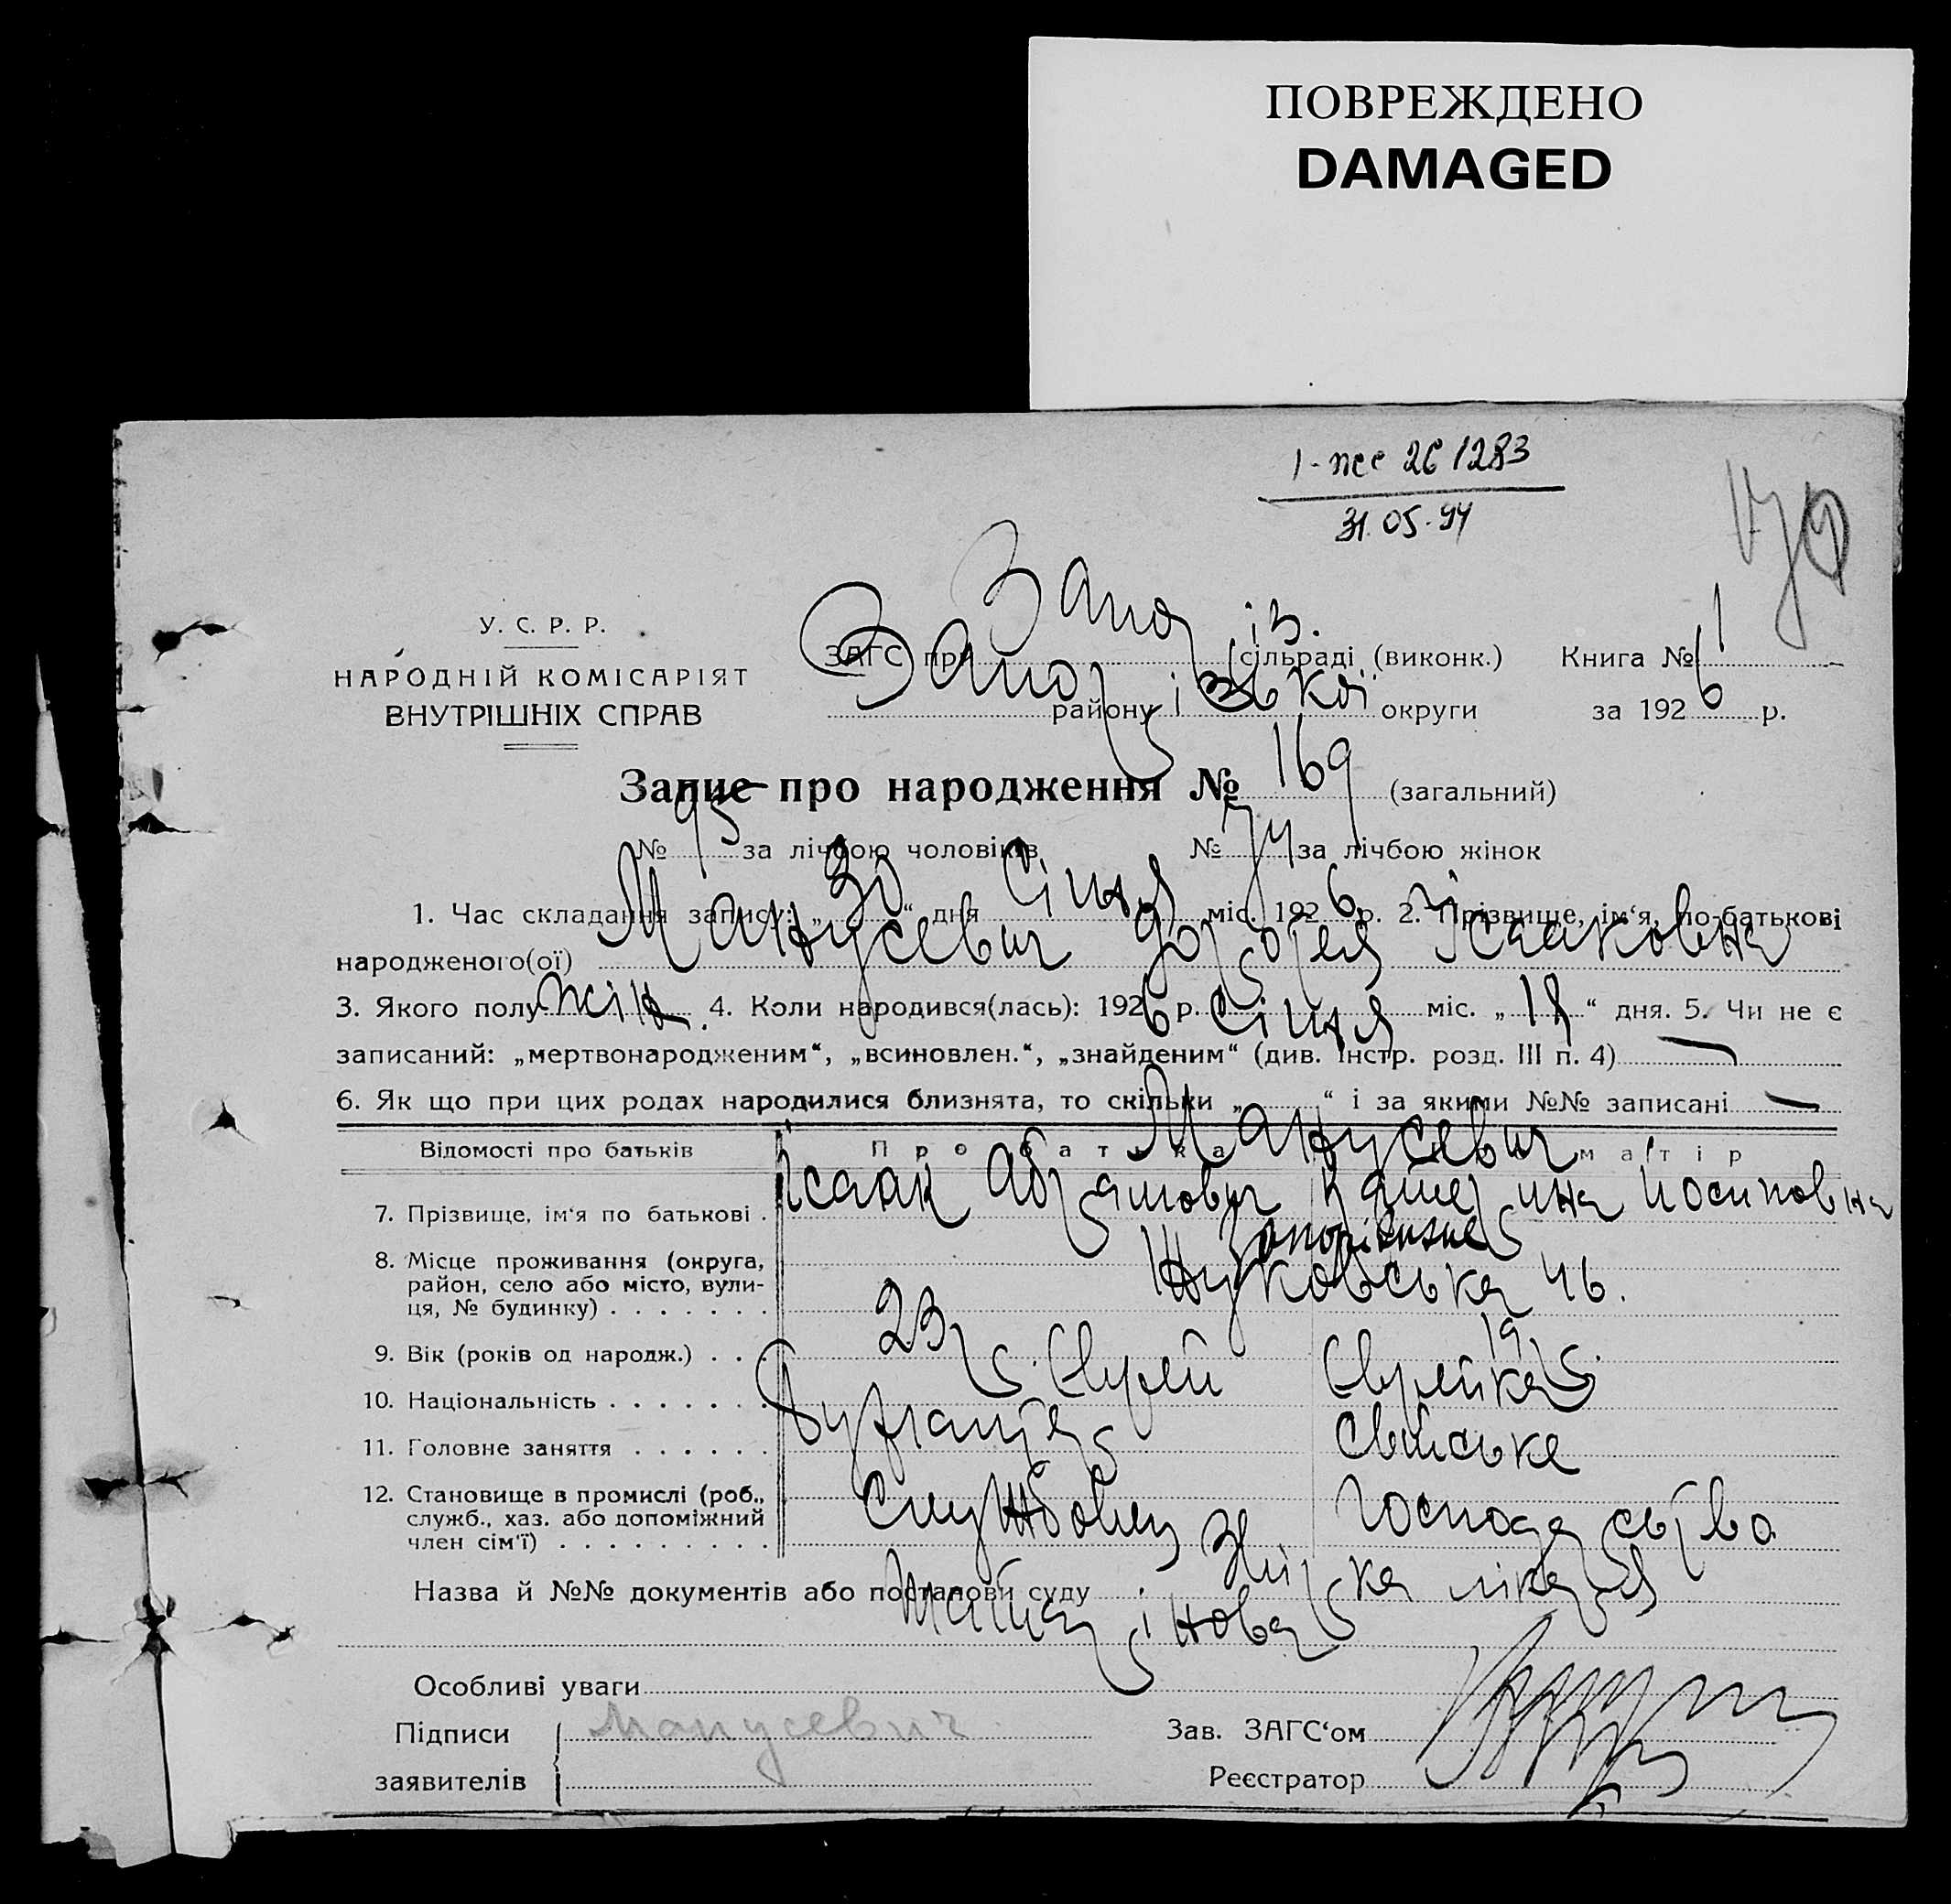 ПОВРЕЖДЕНО
DAMAGED
26 1283
31.05.94
У. С. Р. Р.
НАРОДНІЙ КОМІСАРІЯТ
ВНУТРІШНІХ СПРАВ
ЗАГС при Запоріз. сільраді (виконк.) Книга № 1
Запорізької району округи за 1926 р.
Запис про народження № 169 (загальний)
№ 95 за лічбою чоловіків № 74 за лічбою жінок
1. Час складання запису: „30“ дня Січня міс. 1926 р. 2. Прізвище, ім‘я, по-батькові
народженого(ої) Манусевич Ісааковна
3. Якого полу жін. 4. Коли народився(лась): 1926 р. Січня міс. „18“ дня. 5. Чи не є
записаний: „мертвонародженим“, „всиновлен.“, „знайденим“ (див. Інстр. розд. III п. 4) —
6. Як що при цих родах народилися близнята, то скільки „ “ і за якими №№ записані —
Відомості про батьків Про батька Про матір
Манусевич
7. Прізвище, ім‘я по батькові . Ісаак Абрамович Йосиповна
8. Місце проживання (округа, район, село або місто, вулиця, № будинку) . . . . . . . Запоріжжє
Жуковська 46.
9. Вік (років од народж.) . . . 23 р. 19 р.
10. Національність . . . . . . . Єврей Єврейка
11. Головне заняття . . . . . . Бухгальтер Свійське
12. Становище в промислі (роб., служб., хаз. або допоміжний член сім‘ї) . . . . . . . . . Службовець господарство
Назва й №№ документів або постанови суду лікаря
Особливі уваги
Підписи заявителів Манусевич
Зав. ЗАГС‘ом
Реєстратор